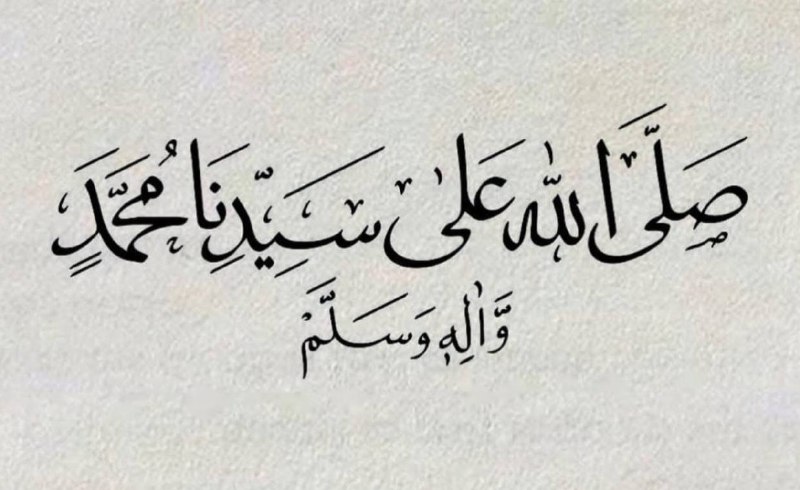 صَلَّى اللهُ عَلىٰ سَيِّدِنَا مُحَمَّدٍ
وَّاٰلِهٖ وَسَلَّمْ